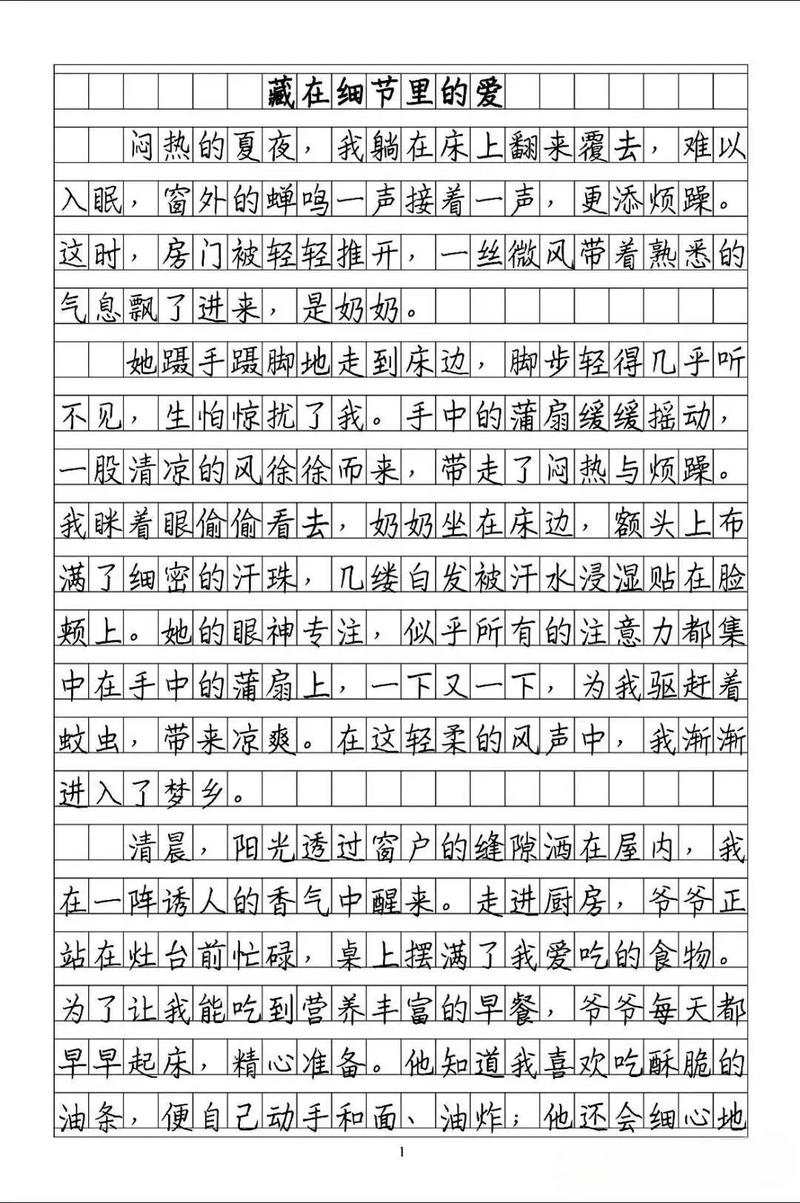 藏在细节里的爱
闷热的夏夜，我躺在床上翻来覆去，难以
入眠，窗外的蝉鸣一声接着一声，更添烦躁。
这时，房门被轻轻推开，一丝微风带着熟悉的
气息飘了进来，是奶奶。
她蹑手蹑脚地走到床边，脚步轻得几乎听
不见，生怕惊扰了我。手中的蒲扇缓缓摇动，
一股清凉的风徐徐而来，带走了闷热与烦躁。
我眯着眼偷偷看去，奶奶坐在床边，额头上布
满了细密的汗珠，几缕白发被汗水浸湿贴在脸
颊上。她的眼神专注，似乎所有的注意力都集
中在手中的蒲扇上，一下又一下，为我驱赶着
蚊虫，带来凉爽。在这轻柔的风声中，我渐渐
进入了梦乡。
清晨，阳光透过窗户的缝隙洒在屋内，我
在一阵诱人的香气中醒来。走进厨房，爷爷正
站在灶台前忙碌，桌上摆满了我爱吃的食物。
为了让我能吃到营养丰富的早餐，爷爷每天都
早早起床，精心准备。他知道我喜欢吃酥脆的
油条，便自己动手和面、油炸；他还会细心地
1